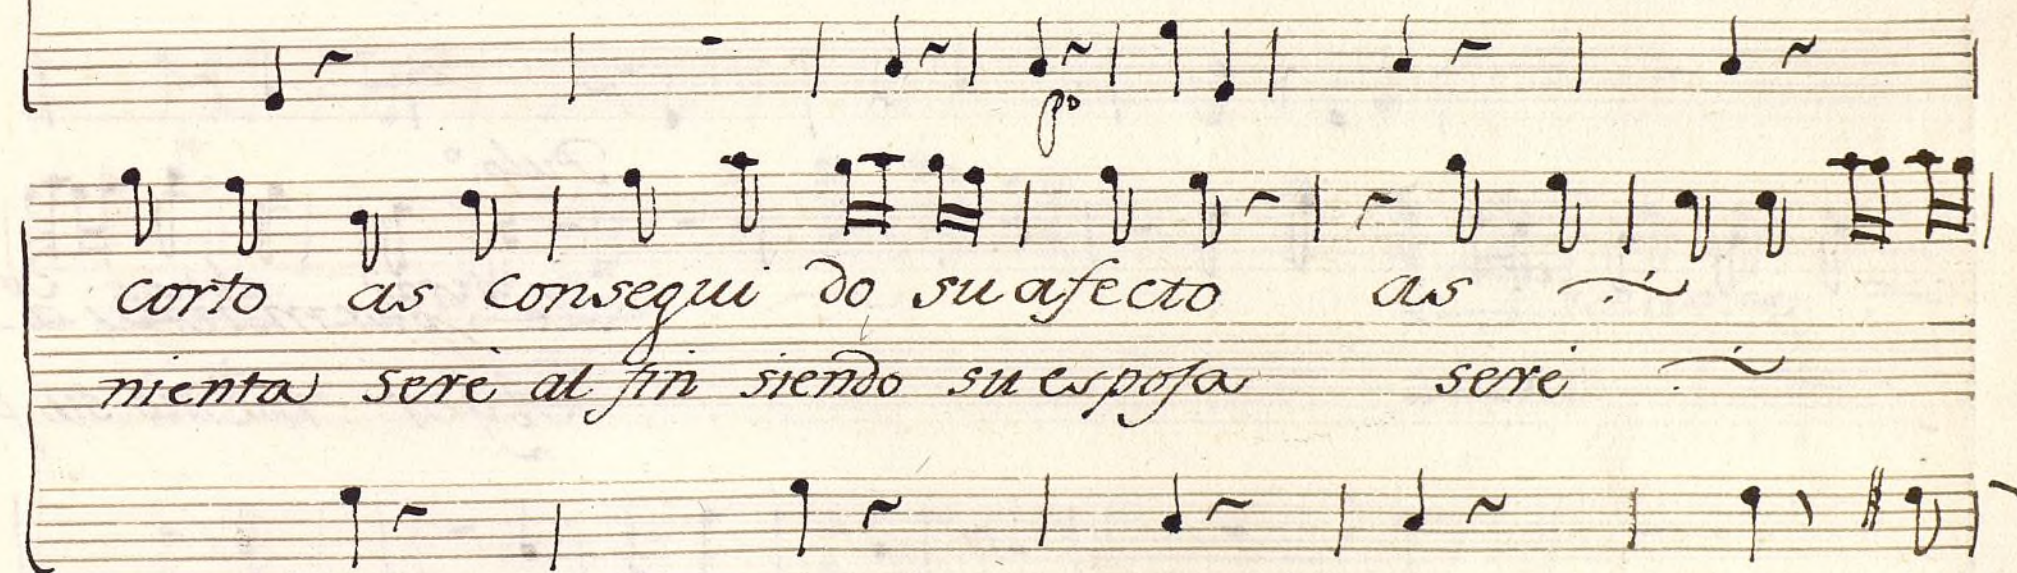 po
corto as consegui do su afecto as
nienta serè al fin siendo su esposa serè